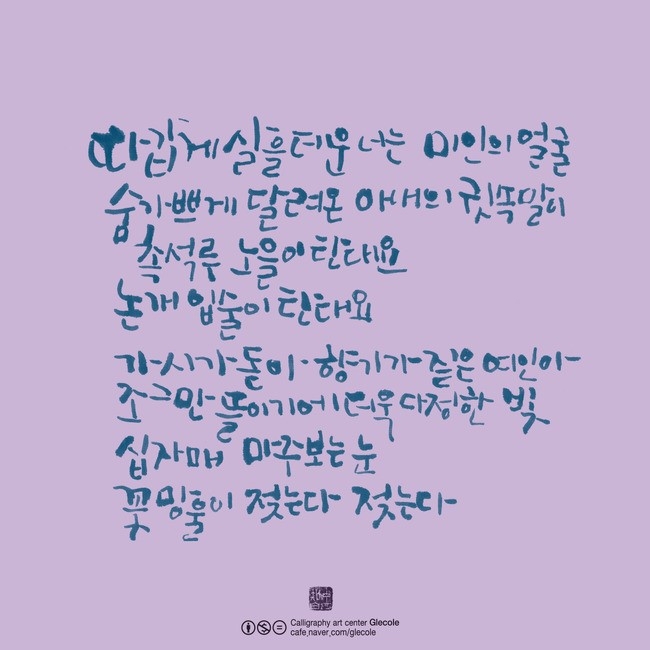 따갑게 실흘더운 너는 미인의 얼굴
숨가쁘게 달려온 아내의 귓쏙말이
촉석루 노을이 탄대요
논개 입술이 탄대요
가시가 돋아 향기가 짙은 여인아
조그만 뜰이기에 더욱 다정한 빛
십자매 마주보는 눈
꽃밍울이 젖는다 젖는다
Calligraphy art center Glecole
cafe.naver.com/glecole